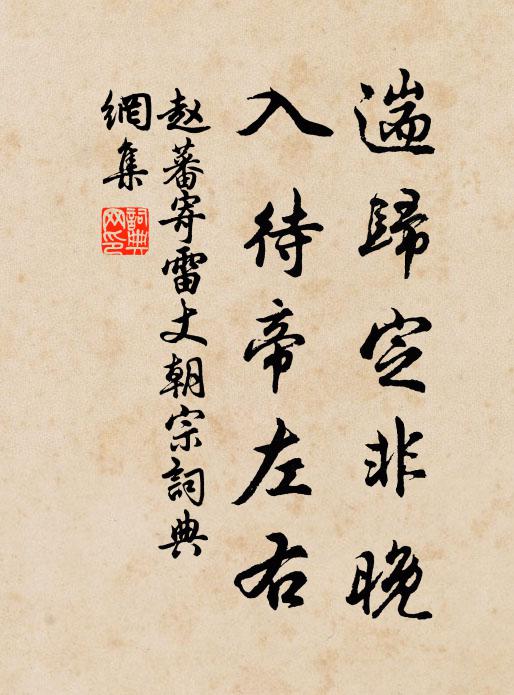 遄歸定非晚
入待帝左右
赵蕃寄雷丈朝宗詞典
網集
詞典网印